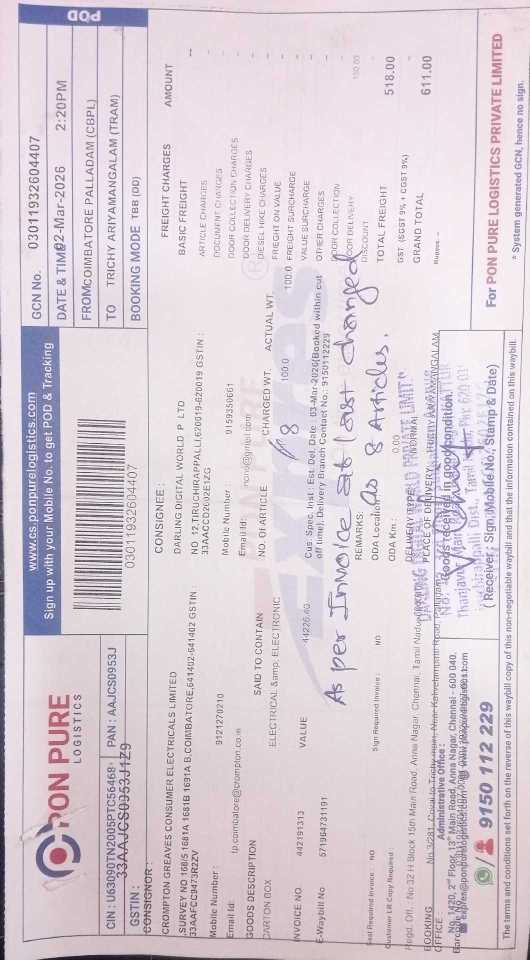 PON PURE
LOGISTICS
www.cs.ponpurelogistics.com
Sign up with your Mobile No. to get POD & Tracking
POD
CIN : U63090TN2005PTC56468 PAN : AAJCS0953J
GSTIN : 33AAJCS0953J1Z9
03011932604407
GCN No. 03011932604407
DATE & TIME 02-Mar-2026 2:20PM
FROM COIMBATORE PALLADAM (CBPL)
TO TRICHY ARIYAMANGALAM (TRAM)
BOOKING MODE TBB (DD)
CONSIGNOR :
CROMPTON GREAVES CONSUMER ELECTRICALS LIMITED
SURVEY NO 168/5 1681A 1681B 1691A B,COIMBATORE,641402-641402 GSTIN :
33AAFCC9473R2ZV
Mobile Number : 9121270210
Email Id:
CONSIGNEE :
DARLING DIGITAL WORLD P LTD
NO 12,TIRUCHIRAPPALLI,620019-620019 GSTIN :
33AACCD2602E1ZG
Mobile Number : 9159350661
Email Id:
GOODS DESCRIPTION SAID TO CONTAIN NO. Of ARTICLE CHARGED WT. ACTUAL WT.
CARTON BOX ELECTRICAL &amp; ELECTRONIC 8 100.0 100.0
INVOICE NO 442191313 VALUE 44226.40
E-Waybill No 571964731191
Cus. Spec. Inst : Est. Del. Date : 03-Mar-2026(Booked within cut
off time); Delivery Branch Contact No.: 9150112229
As per Invoice at last changed
REMARKS: as 8 Articles.
ODA Location
ODA Km : 0.00
Seal Required Invoice : NO Sign Required Invoice : NO
Customer LR Copy Required :
DELIVERY TYPE : NORMAL
FREIGHT CHARGES AMOUNT
BASIC FREIGHT --
ARTICLE CHARGES
DOCUMENT CHARGES
DOOR COLLECTION CHARGES
DOOR DELIVERY CHARGES
DIESEL HIKE CHARGES
FRIEGHT ON VALUE
FREIGHT SURCHARGE
VALUE SURCHARGE
OTHER CHARGES
DOOR COLLECTION
DOOR DELIVERY
DISCOUNT
TOTAL FREIGHT 518.00
GST (SGST 9% + CGST 9%)
GRAND TOTAL 611.00
Regd. Off. : No 32 H Block 15th Main Road, Anna Nagar, Chennai, Tamil Nadu
BOOKING OFFICE
Administrative Office :
No. 1420, 2nd Floor, 13th Main Road, Anna Nagar, Chennai - 600 040.
9150 112 229
Goods received in good condition.
( Receiver : Sign, Mobile No, Stamp & Date)
For PON PURE LOGISTICS PRIVATE LIMITED
* System generated GCN, hence no sign.
The terms and conditions set forth on the reverse of this waybill copy of this non-negotiable waybill and that the information contained on this waybill.